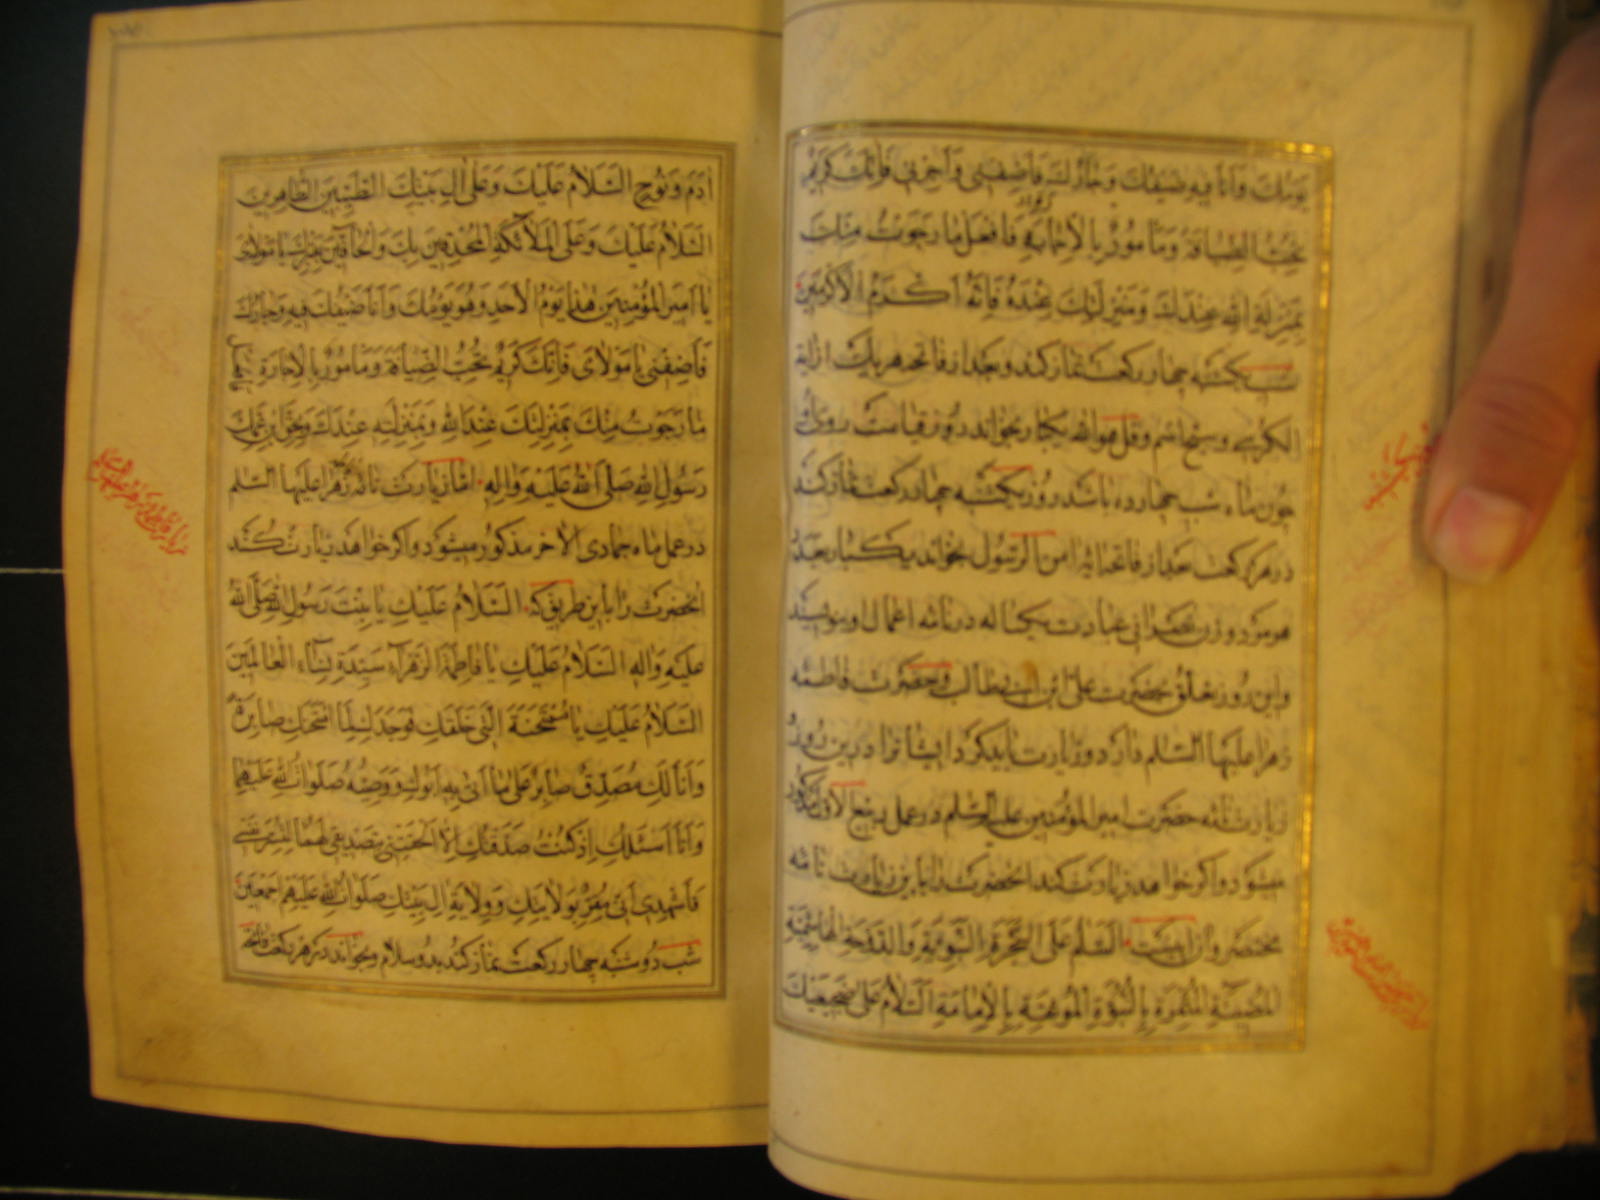 يومك وانا فيه ضيفك وجارك فاضفني واجرني فانك كريم
تحب الضيافة ومامور بالاجابة فافعل ما رجوت منك
بمنزلة الله عندك ومنزلتك عنده فانه اكرم الاكرمين
شب يكشنبه چهار ركعت نماز كند وبعد از فاتحه هر يك از اية
الكرسي وسبح اسم وقل هو الله يكبار بخواند روز قيامت روى او
چون ماه شب چهارده باشد روز يكشنبه چهار ركعت نماز كند
در هر ركعت بعد از فاتحه امن الرسول بخواند يكبار بعدد
هر مرد و زن نصراني عبادت يكساله در نامه اعمال او بنويسند
واين روز تعلق بحضرت علي ابن ابيطالب وحضرت فاطمه
زهرا عليها السلم دارد وزيارت بايد كرد ايشانرا درين روز
زيارت نامه حضرت امير المؤمنين عليه السلم در عمل ربيع الاول مذكور
ميشود واكر خواهد زيارت كند انحضرت را باين زيارت نامه
مختصر وان اينست السلم على الشجرة النبوية والدوحة الهاشمية
المضيئة المثمرة بالنبوة المونعة بالامامة السلام على ضجيعيك
اٰدَمَ وَنُوحٍ السَّلامُ عَلَيْكَ وَعَلى اٰلِ بَيْتِكَ الطَّيِّبينَ الطَّاهِرينَ
السَّلامُ عَلَيْكَ وَعَلَى الْمَلآئكَةِ الْمُحْدِقينَ بِكَ وَالْحافّينَ بِقَبْرِكَ يا مَولاىَ
يا اَميرَ الْمُؤْمِنينَ هٰذا يَوْمُ الْاَحَدِ وَهُوَ يَوْمُكَ وَاَنَا ضَيْفُكَ فيهِ وَجارُكَ
فَاَضِفْنى يا مَوْلاىَ فَاِنَّكَ كَريمٌ تُحِبُّ الضِّيافَةَ وَمَامُورٌ بِالْاِجارَةِ
ما رَجَوْتُ مِنْكَ بِمَنْزِلَتِكَ عِنْدَ اللّٰهِ وَبِمَنْزِلَتِهِ عِنْدَكَ وَبِحَقِّ ابْنِ عَمِّكَ
رَسُولِ اللّٰهِ صَلَّى اللّٰهُ عَلَيْهِ وَاٰلِهِ اما زيارت نامه زهرا عليها السلم
در عمل ماه جمادى الاخر مذكور ميشود واكر خواهد زيارت كند
انحضرت را باين طريق كه السَّلامُ عَلَيْكِ يا بِنْتَ رَسُولِ اللّٰهِ صَلَّى اللّٰهُ
عَلَيْهِ وَاٰلِهِ السَّلامُ عَلَيْكِ يا فاطِمَةُ الزَّهْرآءِ سَيِّدَةِ نِسآءِ الْعالَمينَ
السَّلامُ عَلَيْكِ يا مُمْتَحَنَةُ الَّتى خَلَقَكِ فَوَجَدَكِ لِمَا امْتَحَنَكِ صابِرَةً
وَاَنَا لَكِ مُصَدِّقٌ صابِرٌ عَلى ما اَتى بِهِ اَبُوكِ وَوَصِيُّهُ صَلَواتُ اللّٰهِ عَلَيْهِما
وَاَنَا اَسْئَلُكِ اِذْ كُنْتُ صَدَّقْتُكِ اِلّا اَلْحَقْتِنى بِتَصْديقى لَهُما لِتُسَرَّ نَفْسى
فَاَشْهِدى اَنّى مُقِرٌّ بِوَلايَتِكِ وَوِلايَةِ اٰلِ بَيْتِكِ صَلَواتُ اللّٰهِ عَلَيْهِمْ اَجْمَعينَ
شب دوشنبه چهار ركعت نماز كند بدو سلام وبخواند در هر ركعت فاتحه